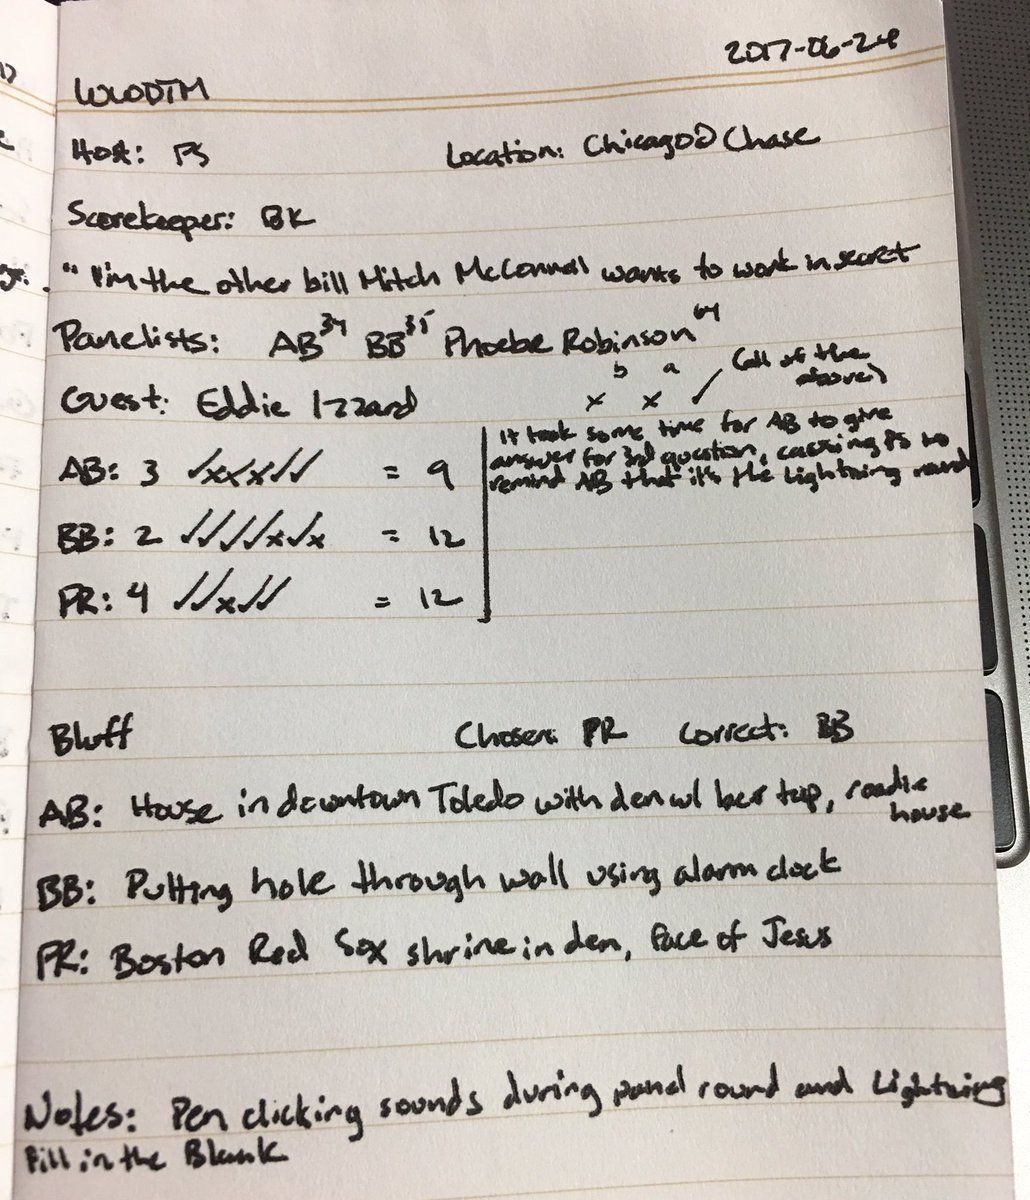 2017-06-24
WWDTM
Host: PS Location: Chicago @ Chase
Scorekeeper: BK
"I'm the other bill Mitch McConnell wants to work in secret
Panelists: AB 34 BB 35 Phoebe Robinson 64
Guest: Eddie Izzard x b x a ✓ (all of the above)
It took some time for AB to give
answer for 3rd question, causing PS to
remind AB that it's the Lightning round
AB: 3 ✓xxx✓✓ = 9
BB: 2 ✓✓✓✓x✓x = 12
PR: 4 ✓✓x✓✓ = 12
Bluff Chosen: PR Correct: BB
AB: House in downtown Toledo with den w/ bar top, roadie
house
BB: Putting hole through wall using alarm clock
PR: Boston Red Sox shrine in den, face of Jesus
Notes: Pen clicking sounds during panel round and Lightning
Fill in the Blank